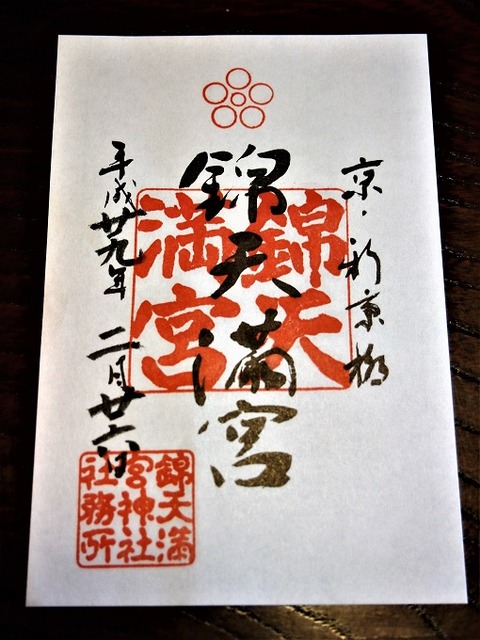 京・新京極
錦天満宮
平成廿九年 二月廿六日
錦天
満宮
錦天満
宮神社
社務所